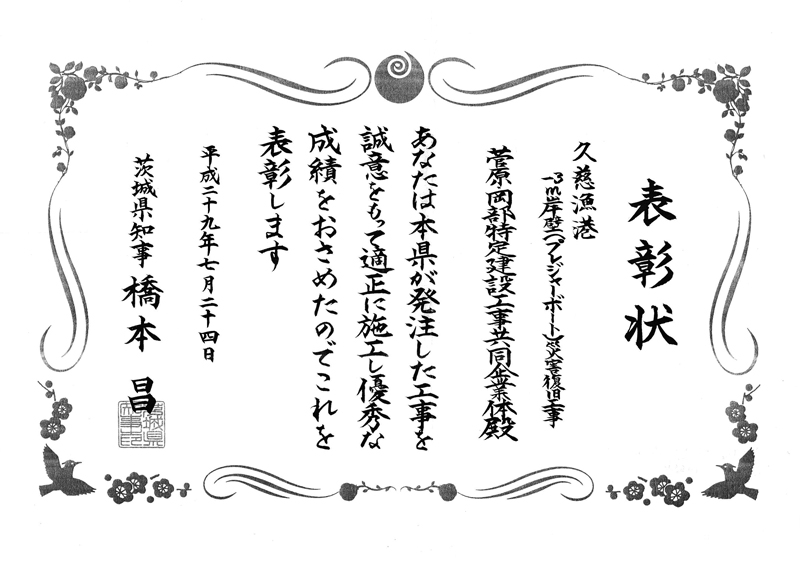 表彰状
久慈漁港
-3m岸壁(プレジャーボート)災害復旧工事
菅原岡部特定建設工事共同企業体殿
あなたは本県が発注した工事を
誠意をもって適正に施工し優秀な
成績をおさめたのでこれを
表彰します
平成二十九年七月二十四日
茨城県知事 橋本 昌
茨城県
知事印